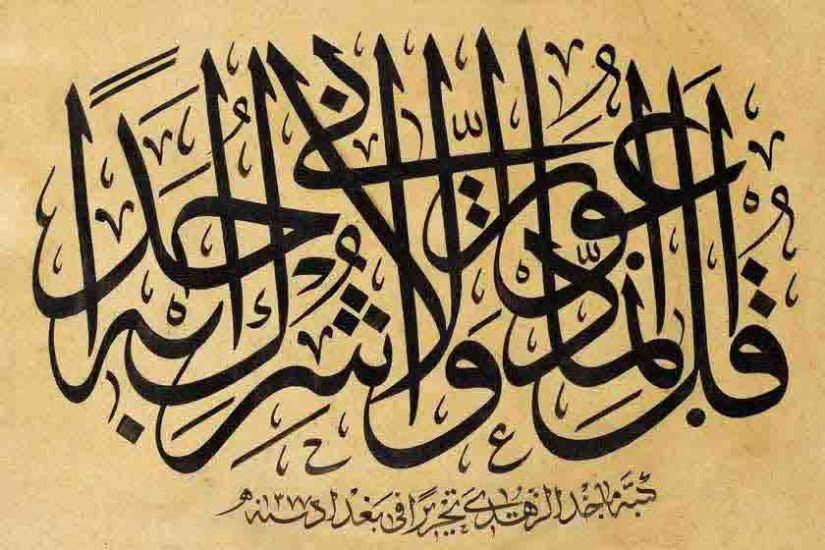 قل إنما أدعوا ربي ولا أشرك به أحدا
كتبه ماجد الزهدي تحريرا في بغداد سنة ١٣٧٧ هـ